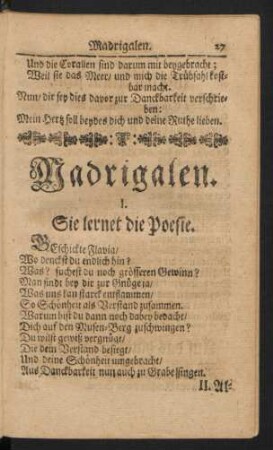 Madrigalen. 27
Und die Corallen sind darum mit beygebracht;
Weil sie das Meer/ und mich die Trübsahl kost-
bar macht.
Nun/ dir sey dies davor zur Danckbarkeit verschrie-
ben:
Mein Hertz soll beydes dich und deine Ruthe lieben.
Madrigalen.
I.
Sie lernet die Poesie.
GEschickte Flavia/
Wo denckst du endlich hin?
Was? suchest du noch grösseren Gewinn?
Man findt bey dir zur Gnüge ja/
Was uns kan starck entflammen/
So Schönheit als Verstand zusammen.
Warum bist du dann noch dabey bedacht/
Dich auf den Musen-Berg zuschwingen?
Du wilst gewiß vergnügt/
Die dein Verstand besiegt/
Und deine Schönheit umgebracht/
Aus Danckbarkeit nun auch zu Grabe singen.
II. Al-